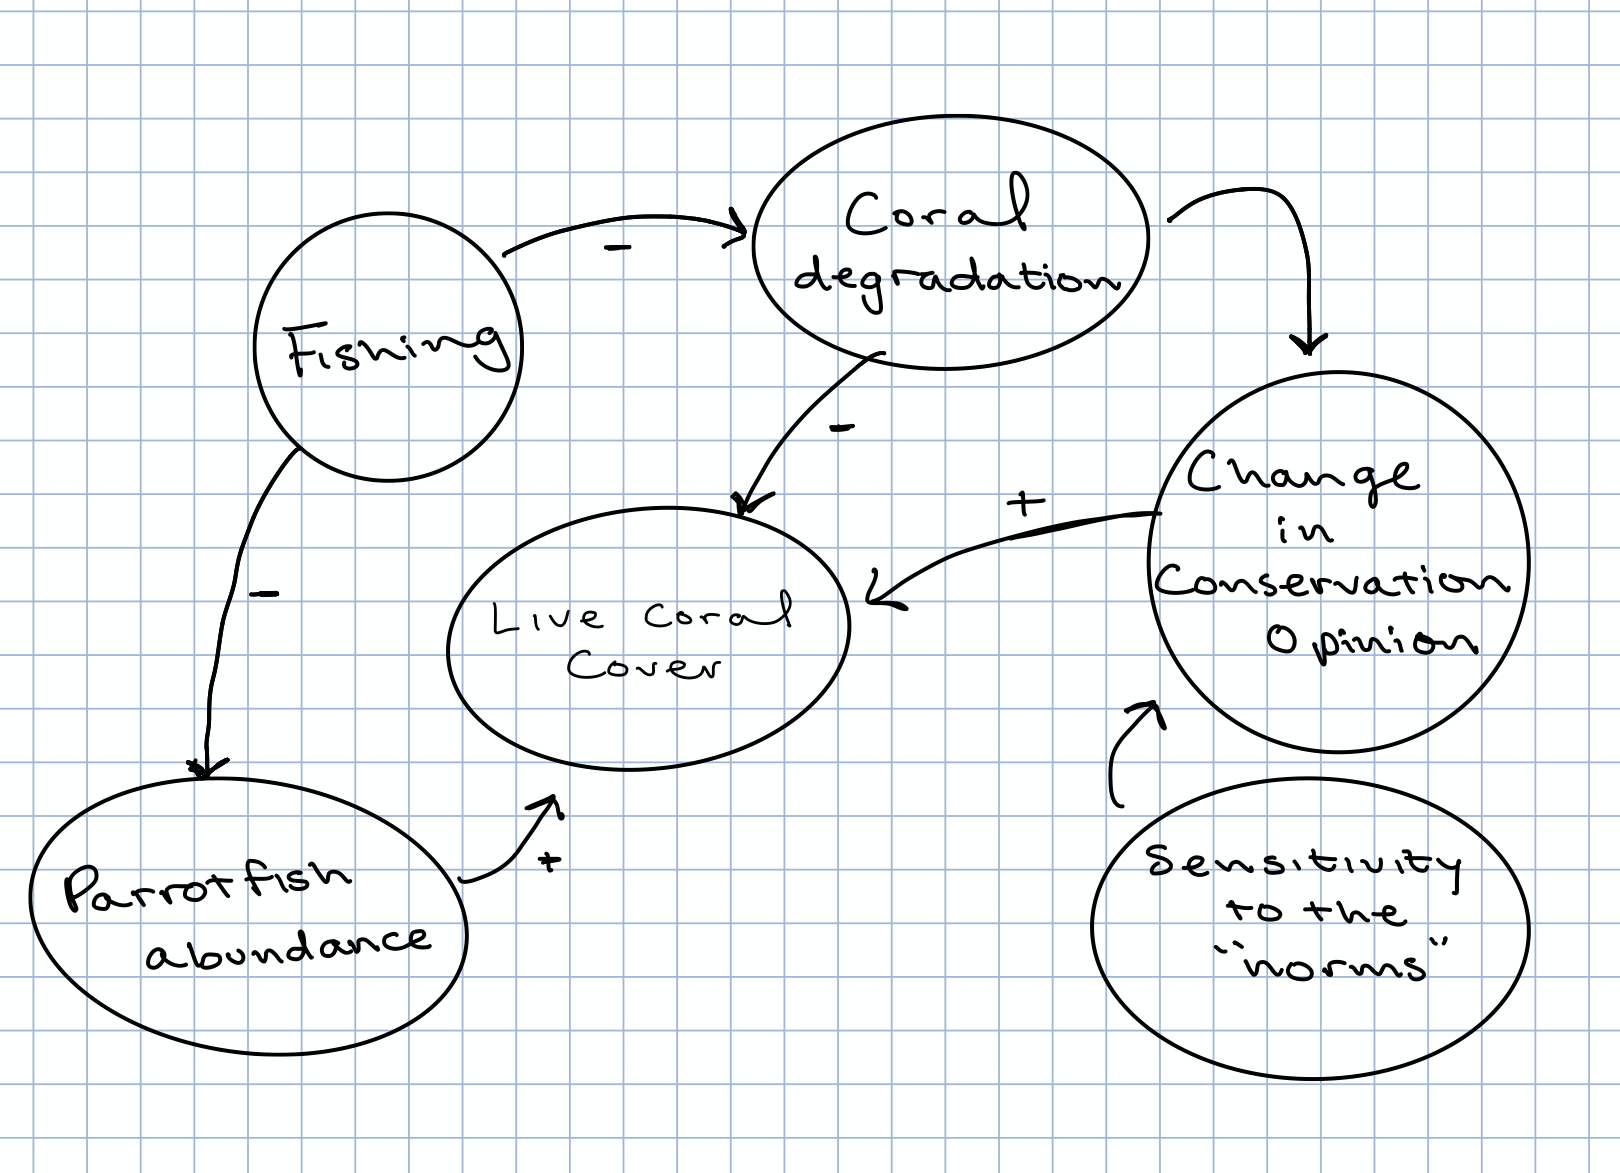 Coral
degradation
-
Fishing
-
-
Change
in
Conservation
Opinion
+
-
Live Coral
Cover
Parrotfish
abundance
+
Sensitivity
to the
"norms"